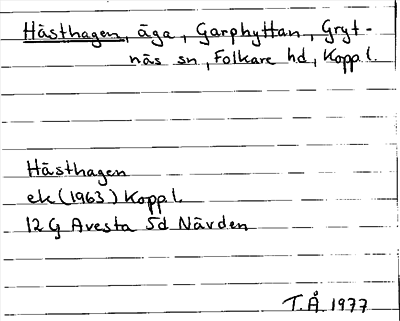 Hästhagen, äga, Garphyttan, Gryt-
näs sn, Folkare hd, Kopp.l.
Hästhagen
ek (1963) Kopp.l.
12 G Avesta 5d Nävden
T.Å. 1977